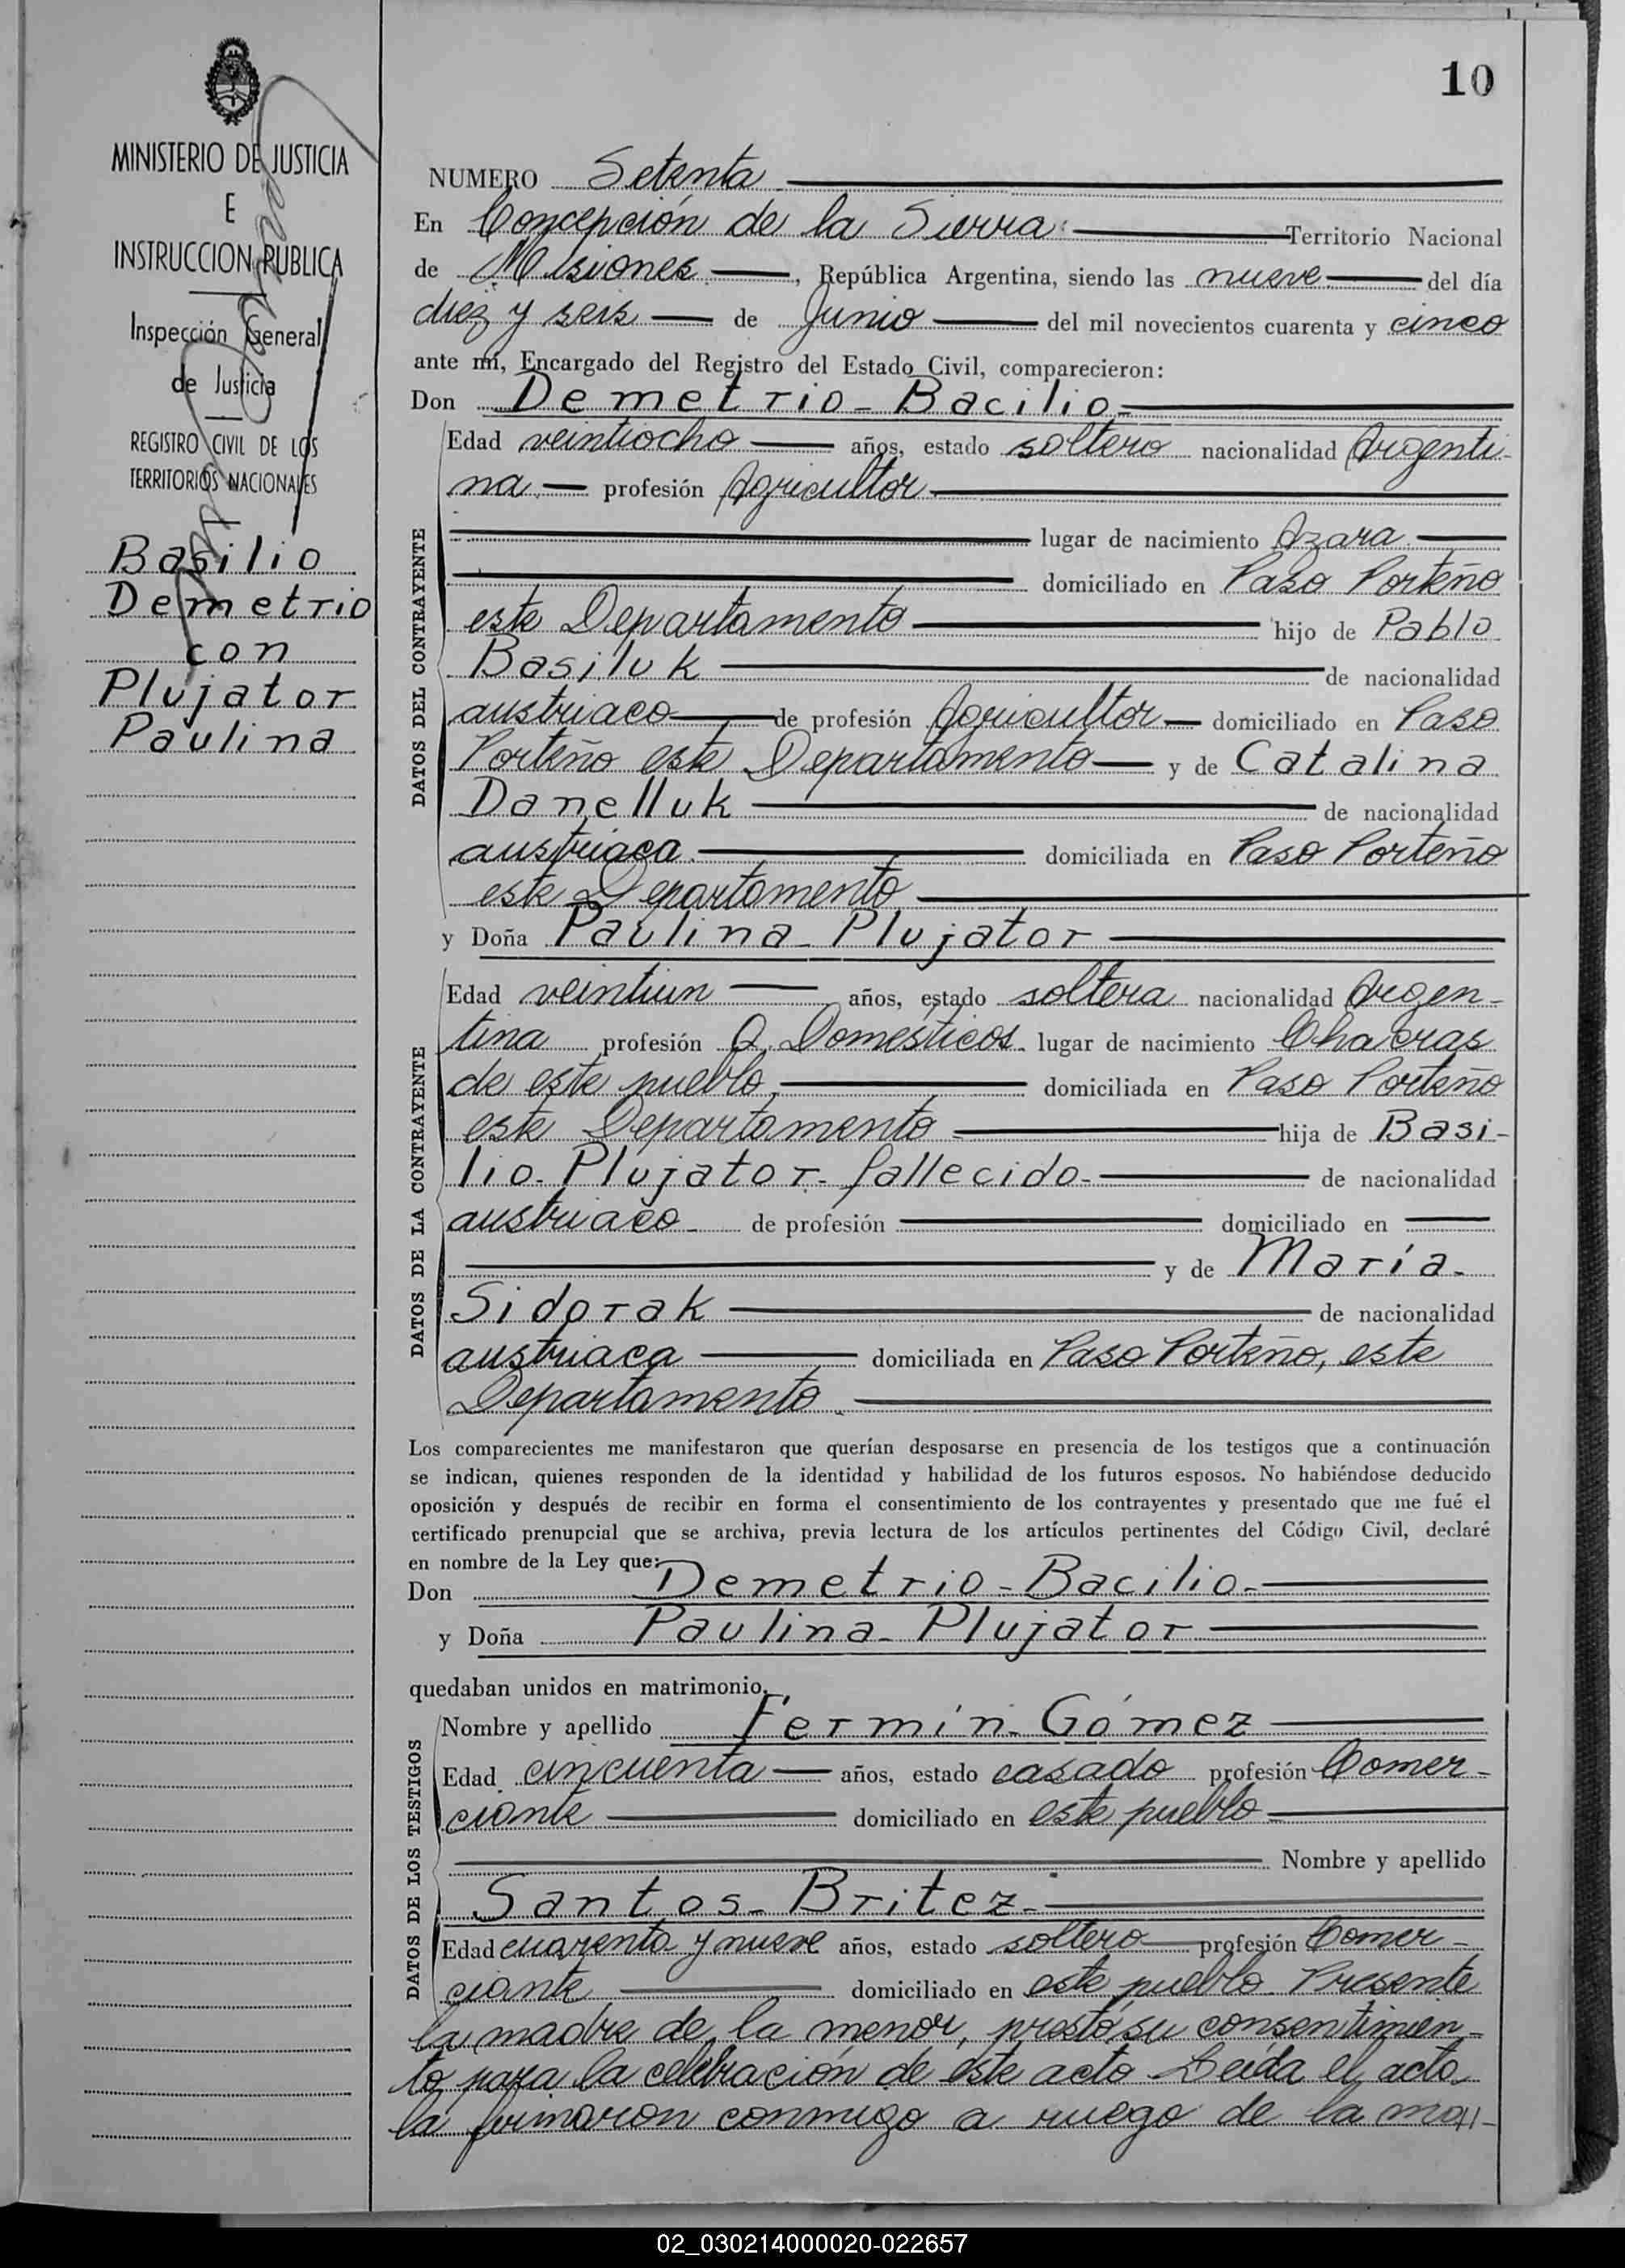 10
MINISTERIO DE JUSTICIA
E
INSTRUCCION PUBLICA
Inspección General
de Justicia
REGISTRO CIVIL DE LOS
TERRITORIOS NACIONALES
Basilio
Demetrio
con
Plujator
Paulina
NUMERO Setenta
En Concepción de la Sierra Territorio Nacional
de Misiones, República Argentina, siendo las nueve del día
diez y seis de Junio del mil novecientos cuarenta y cinco
ante mí, Encargado del Registro del Estado Civil, comparecieron:
Don Demetrio - Bacilio -
DATOS DEL CONTRAYENTE
Edad veintiocho años, estado soltero nacionalidad Argenti-
na. profesión Agricultor
lugar de nacimiento Azara
domiciliado en Paso Porteño
este Departamento hijo de Pablo
Basiluk de nacionalidad
austriaco de profesión Agricultor domiciliado en Paso
Porteño este Departamento y de Catalina
Danelluk de nacionalidad
austriaca domiciliada en Paso Porteño
este Departamento
y Doña Paulina - Plujator
DATOS DE LA CONTRAYENTE
Edad veintiun años, estado soltera nacionalidad Argen-
tina profesión Q. Domésticos. lugar de nacimiento Chacras
de este pueblo, domiciliada en Paso Porteño
este Departamento hija de Basi-
lio - Plujator - fallecido - de nacionalidad
austriaco de profesión domiciliado en
y de María -
Sidorak de nacionalidad
austriaca domiciliada en Paso Porteño, este
Departamento
Los comparecientes me manifestaron que querían desposarse en presencia de los testigos que a continuación
se indican, quienes responden de la identidad y habilidad de los futuros esposos. No habiéndose deducido
oposición y después de recibir en forma el consentimiento de los contrayentes y presentado que me fué el
certificado prenupcial que se archiva, previa lectura de los artículos pertinentes del Código Civil, declaré
en nombre de la Ley que:
Don Demetrio - Bacilio -
y Doña Paulina - Plujator
quedaban unidos en matrimonio.
DATOS DE LOS TESTIGOS
Nombre y apellido Fermín - Gómez
Edad cincuenta años, estado casado profesión Comer-
ciante domiciliado en este pueblo
Nombre y apellido
Santos - Britez -
Edad cuarenta y nueve años, estado soltero profesión Comer-
ciante domiciliado en este pueblo. Presente
la madre de la menor, prestó su consentimien-
to para la celebración de este acto Leída el acta
la firmaron conmigo a ruego de la ma-
02_030214000020-022657